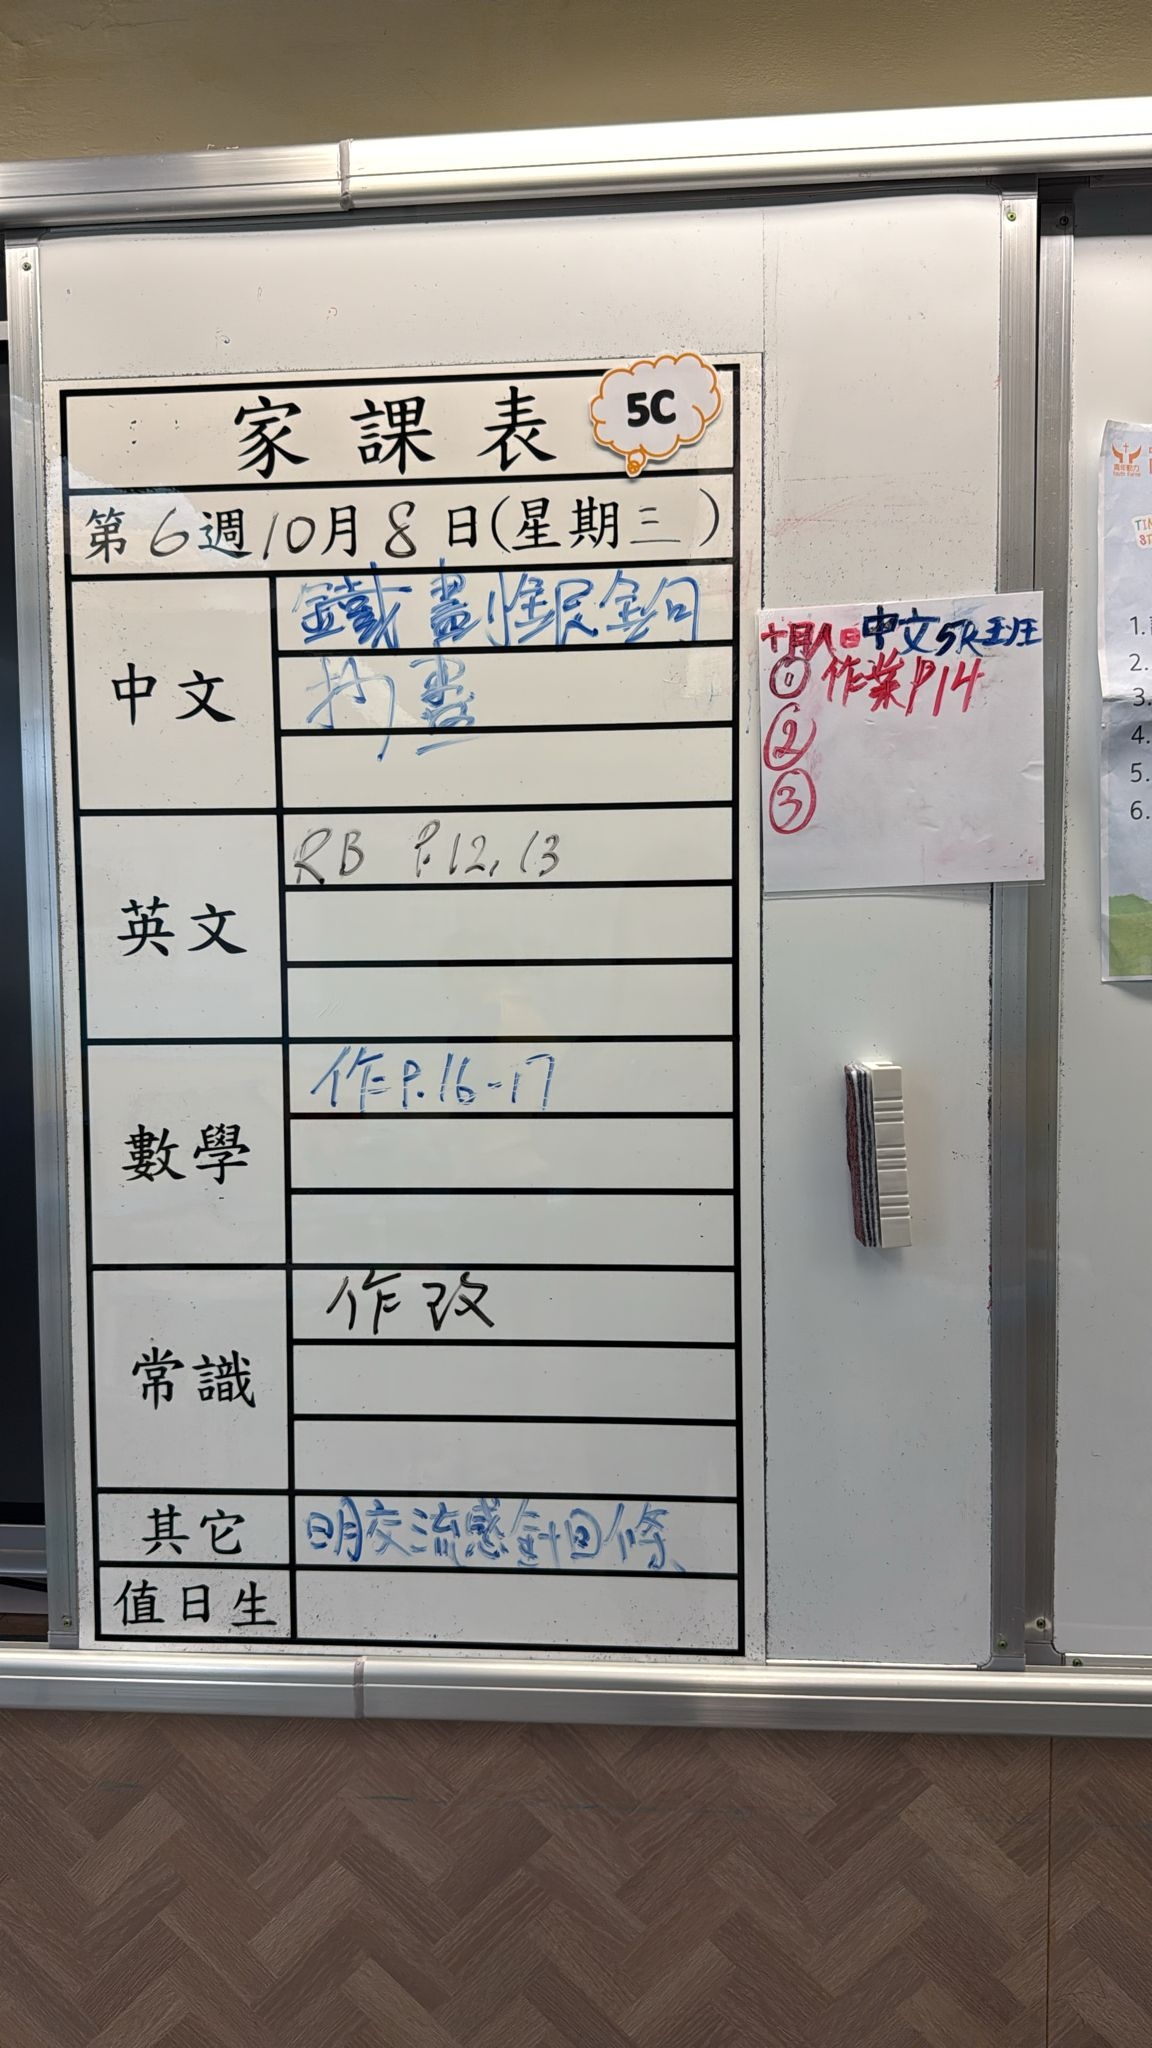 家課表
5C
第6週10月8日(星期三)
中文
鐵畫銀鈎
抄書
英文
RB P.12, 13
數學
作P.16-17
常識
作改
其它
明交流感針回條
值日生
十月八日中文5R班
① 作業P14
②
③
1.
2.
3.
4.
5.
6.